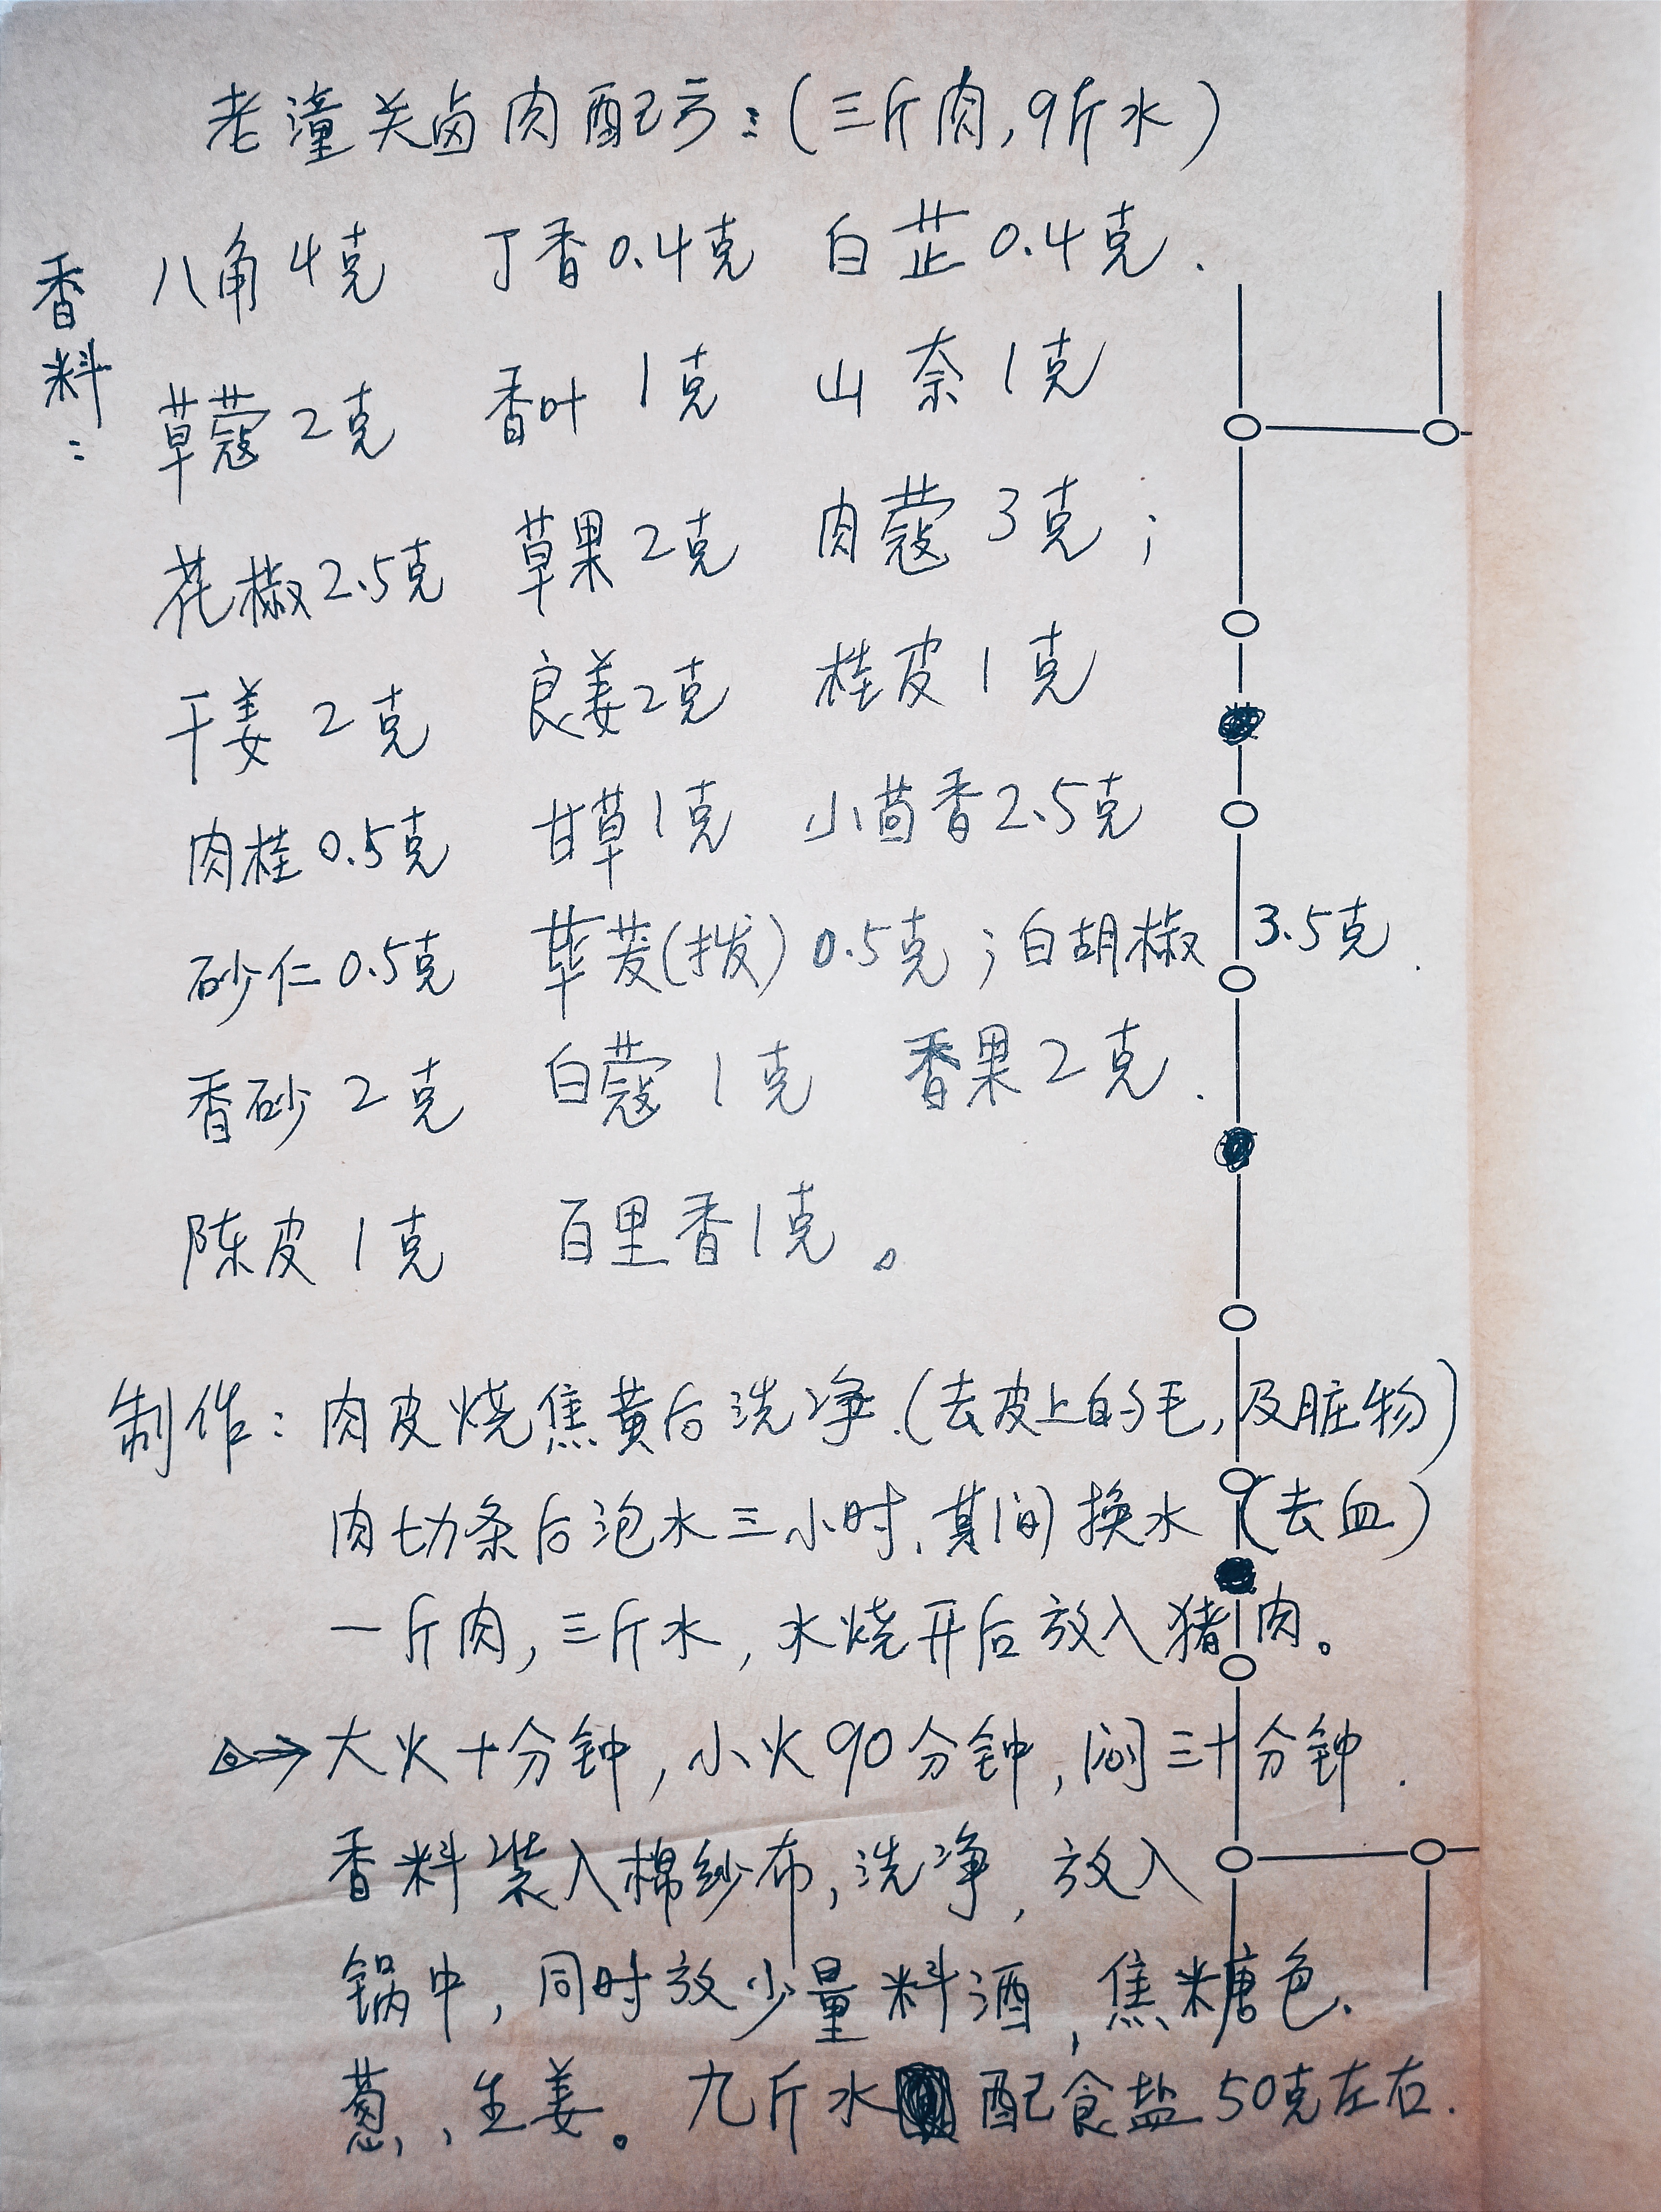 老潼关卤肉配方：(三斤肉,9斤水)
香料：
八角4克 丁香0.4克 白芷0.4克.
草蔻2克 香叶1克 山奈1克
花椒2.5克 草果2克 肉蔻3克；
干姜2克 良姜2克 桂皮1克
肉桂0.5克 甘草1克 小茴香2.5克
砂仁0.5克 荜茇(拨)0.5克；白胡椒3.5克.
香砂2克 白蔻1克 香果2克.
陈皮1克 百里香1克。
制作：肉皮烧焦黄后洗净.(去皮上的毛,及脏物)
肉切条后泡水三小时,其间换水(去血)
一斤肉,三斤水,水烧开后放入猪肉。
⇒大火十分钟,小火90分钟,焖三十分钟.
香料装入棉纱布,洗净,放入
锅中,同时放少量料酒,焦糖色.
葱、生姜。九斤水配食盐50克左右.